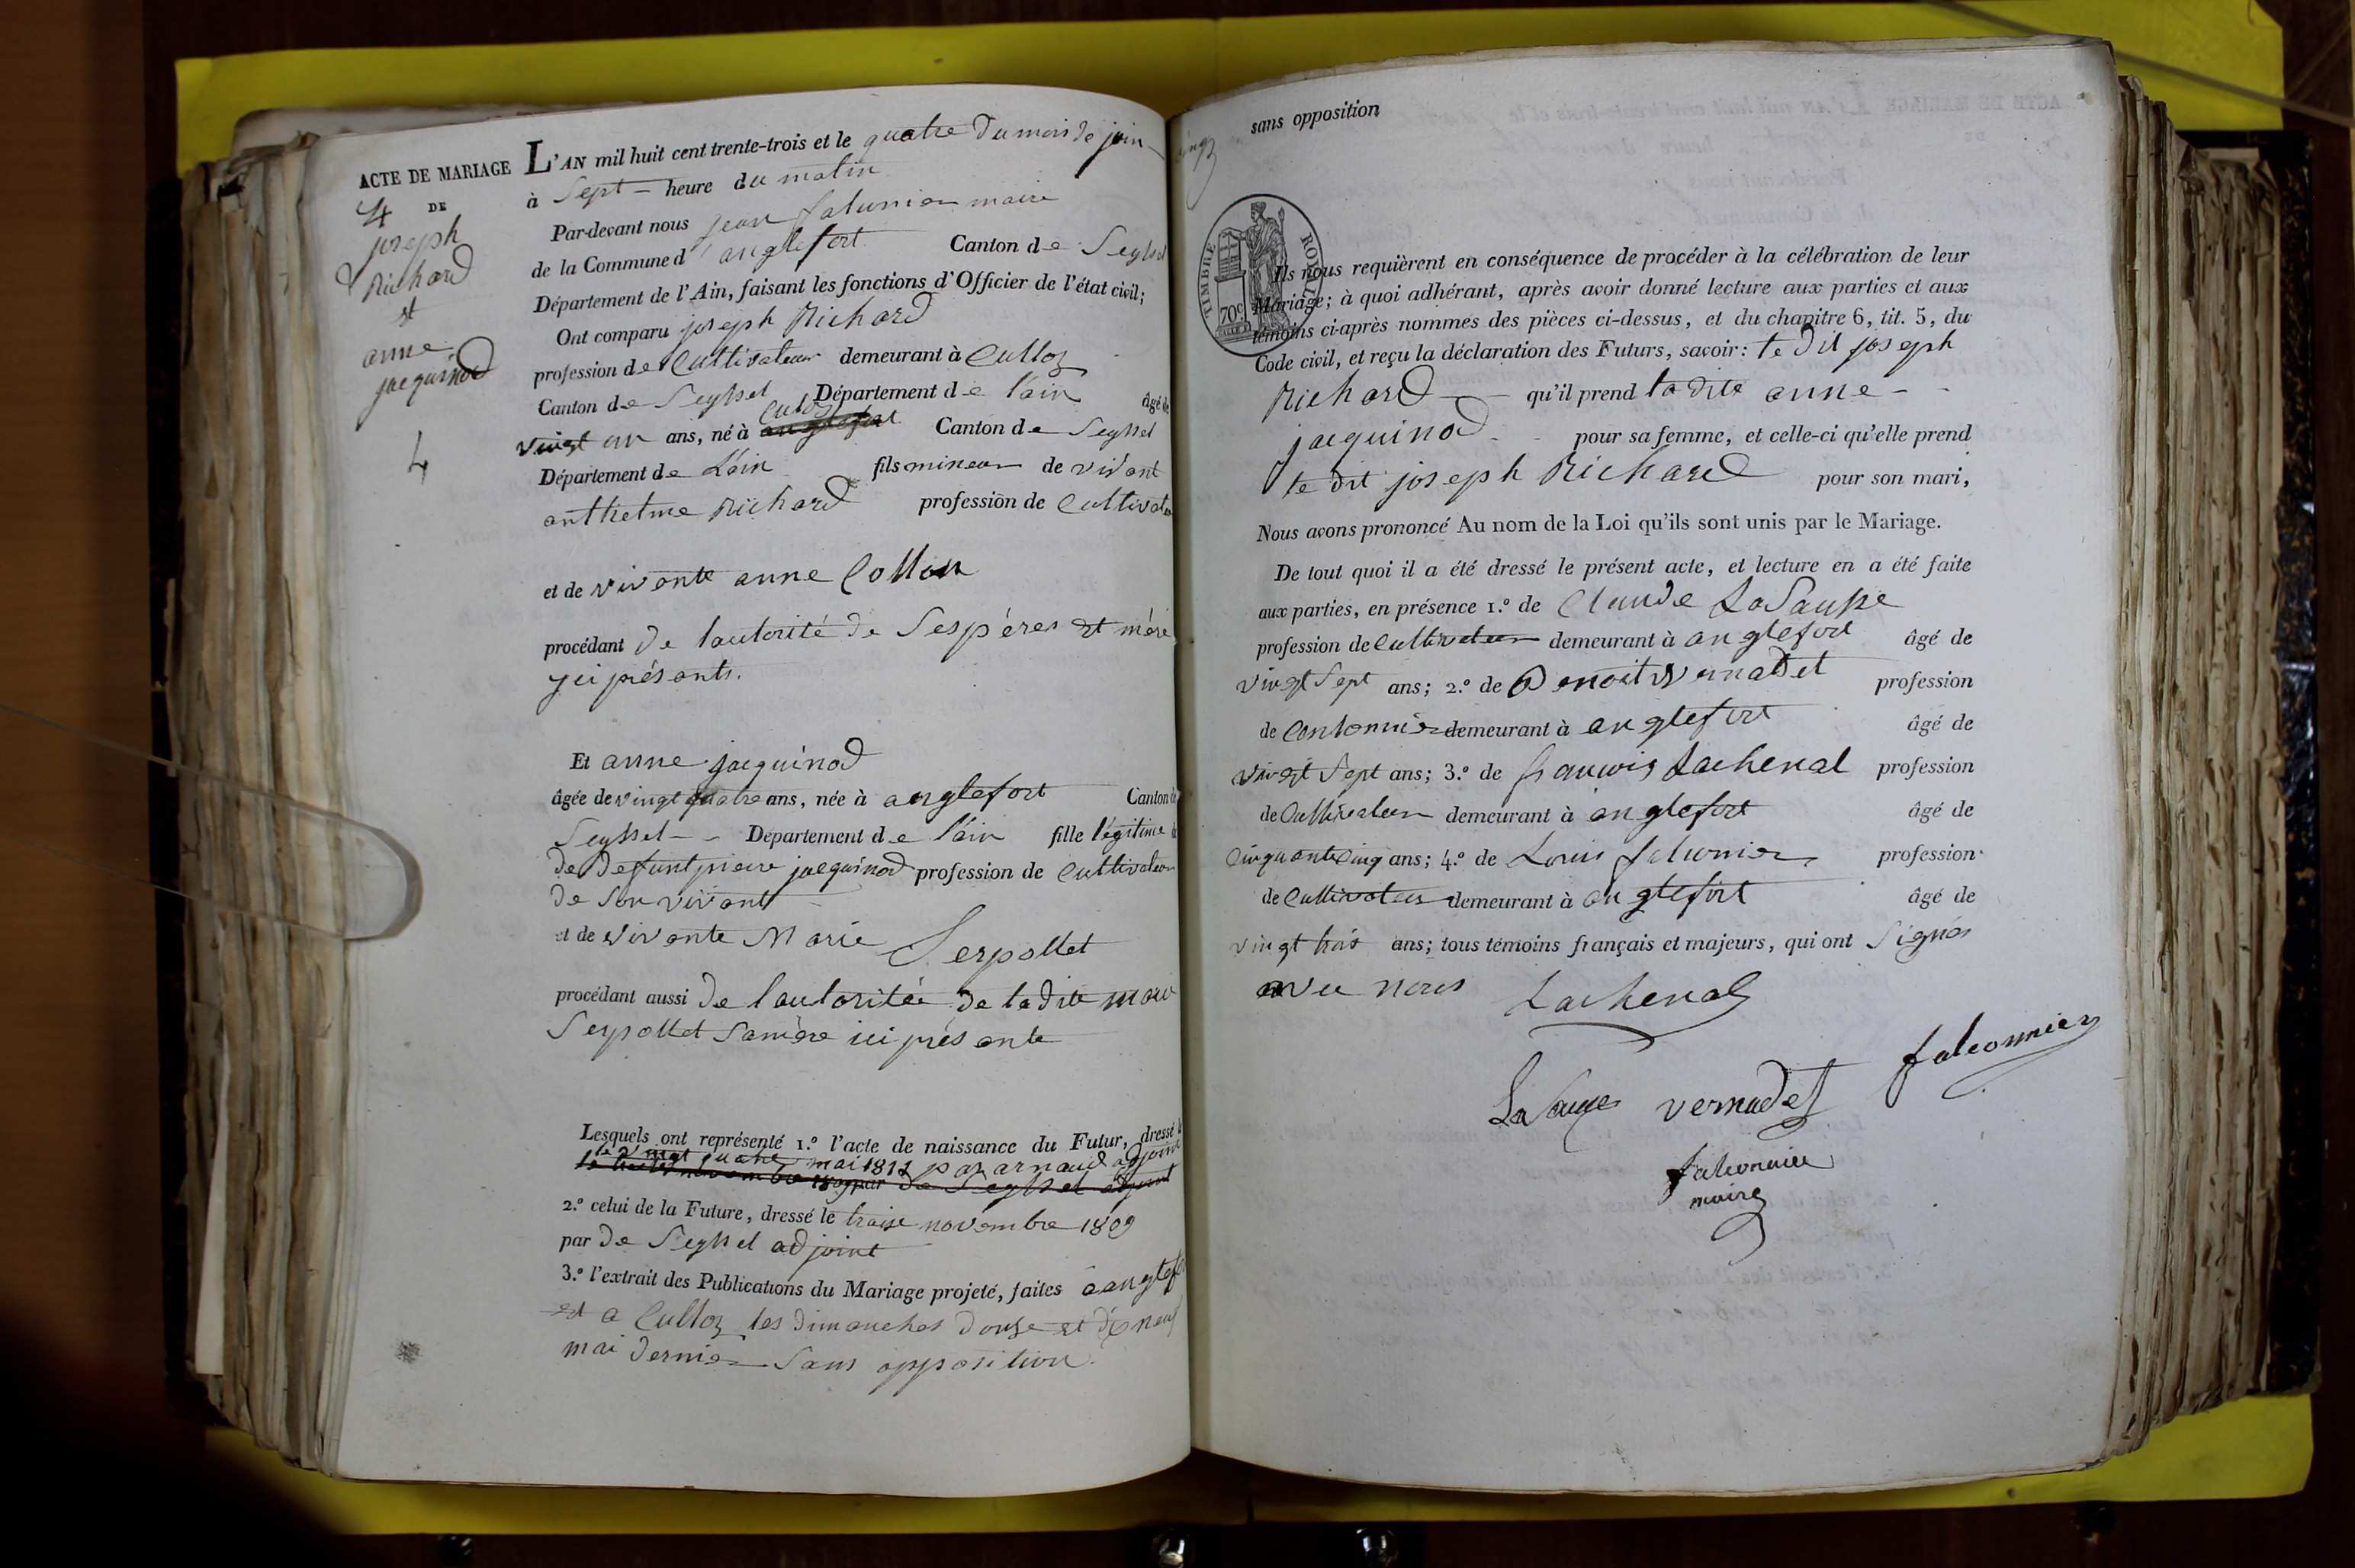 ACTE DE MARIAGE
4 DE
joseph
Richard
et
anne
jacquinod
4
L'AN mil huit cent trente-trois et le quatre du mois de juin
à Sept heure du matin
Par-devant nous jean falconnier maire
de la Commune d'anglefort Canton de Seyssel
Département de l'Ain, faisant les fonctions d'Officier de l'état civil;
Ont comparu joseph Richard
profession de Cultivateur demeurant à Culloz
Canton de Seyssel Département de l'ain âgé de
Culoz
vingt un ans, né à anglefort Canton de Seyssel
Département de L'ain fils mineur de vivant
anthelme Richard profession de Cultivateur
et de vivante anne Collon
procédant de lautorité de Ses pères et mère
yci présents.
Et anne jacquinod
âgée de vingt quatre ans, née à anglefort Canton de
Seyssel Département de l'ain fille légitime de
de defunt pierre jacquinod profession de Cultivateur
de Son vivant
et de vivante Marie Serpollet
procédant aussi de lautoritée de ladite marie
Serpollet Samère ici présente
Lesquels ont représenté 1.º l'acte de naissance du Futur, dressé le
le vingt quatre mai 1812 par arnaud adjoint
le treize novembre 1809 par de Seyssel adjoint
2.º celui de la Future, dressé le traize novembre 1809
par de Seyssel adjoint
3.º l'extrait des Publications du Mariage projeté, faites à anglefort
et a Culloz les dimanches douze et dixneuf
mai dernier Sans opposition.
sans opposition
TIMBRE ROYAL
70c
Ils nous requièrent en conséquence de procéder à la célébration de leur
Mariage; à quoi adhérant, après avoir donné lecture aux parties et aux
témoins ci-après nommés des pièces ci-dessus, et du chapitre 6, tit. 5, du
Code civil, et reçu la déclaration des Futurs, savoir: le dit joseph
Richard qu'il prend la dite anne
jacquinod pour sa femme, et celle-ci qu'elle prend
le dit joseph Richard pour son mari,
Nous avons prononcé Au nom de la Loi qu'ils sont unis par le Mariage.
De tout quoi il a été dressé le présent acte, et lecture en a été faite
aux parties, en présence 1.º de Claude LaSausse
profession de Cultivateur demeurant à anglefort âgé de
vingt Sept ans; 2.º de Benoit Vernadet profession
de Cordonnier demeurant à anglefort âgé de
vingt Sept ans; 3.º de francois Lachenal profession
de Cultivateur demeurant à anglefort âgé de
Cinquante Cinq ans; 4.º de Louis falconnier profession
de Cultivateur demeurant à anglefort âgé de
vingt trois ans; tous témoins français et majeurs, qui ont Signés
avec nous
Lachenal
falconnier
LaSausse vernadet
falconnier
maire